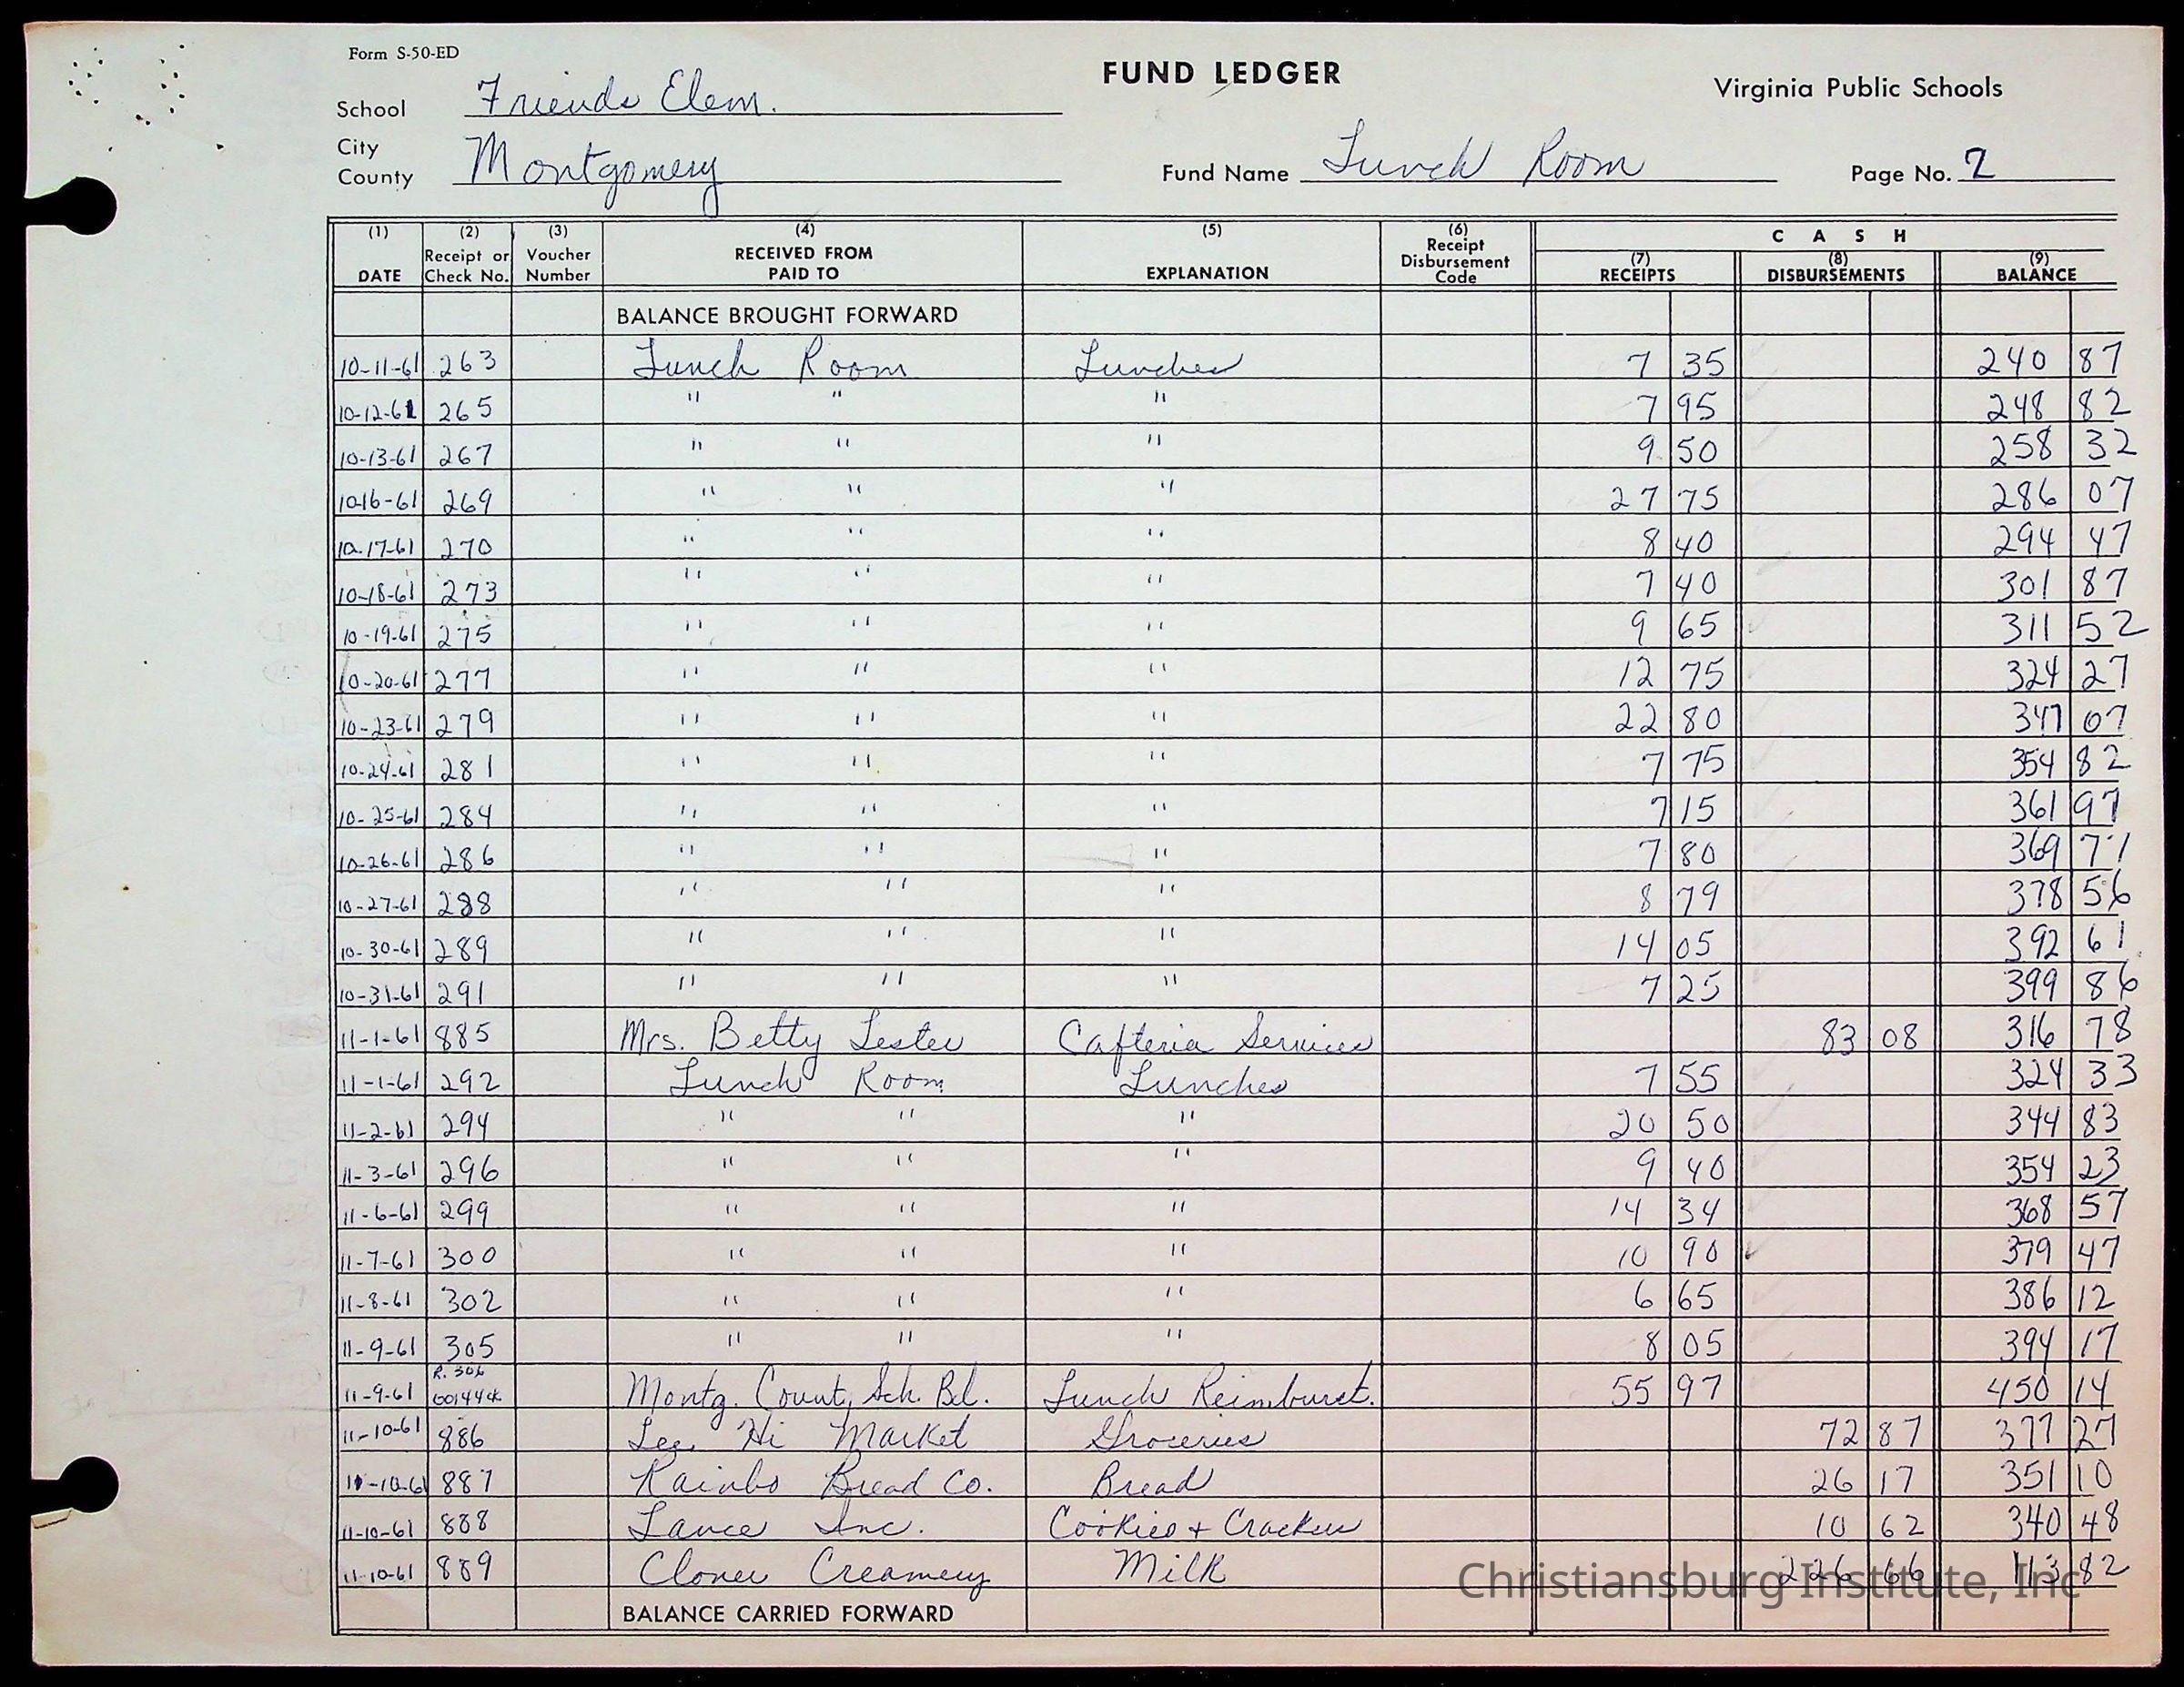 Form S-50-ED
FUND LEDGER
Virginia Public Schools
School Friends Elem.
City
County Montgomery
Fund Name Lunch Room
Page No. 2
(1) DATE (2) Receipt or Check No. (3) Voucher Number (4) RECEIVED FROM PAID TO (5) EXPLANATION (6) Receipt Disbursement Code CASH (7) RECEIPTS (8) DISBURSEMENTS (9) BALANCE
BALANCE BROUGHT FORWARD
10-11-61 263 Lunch Room Lunches 7 35 240 87
10-12-61 265 " " " 7 95 248 82
10-13-61 267 " " " 9 50 258 32
10-16-61 269 " " " 27 75 286 07
10-17-61 270 " " " 8 40 294 47
10-18-61 273 " " " 7 40 301 87
10-19-61 275 " " " 9 65 311 52
10-20-61 277 " " " 12 75 324 27
10-23-61 279 " " " 22 80 347 07
10-24-61 281 " " " 7 75 354 82
10-25-61 284 " " " 7 15 361 97
10-26-61 286 " " " 7 80 369 77
10-27-61 288 " " " 8 79 378 56
10-30-61 289 " " " 14 05 392 61
10-31-61 291 " " " 7 25 399 86
11-1-61 885 Mrs. Betty Lester Cafteria Services 83 08 316 78
11-1-61 292 Lunch Room Lunches 7 55 324 33
11-2-61 294 " " " 20 50 344 83
11-3-61 296 " " " 9 40 354 23
11-6-61 299 " " " 14 34 368 57
11-7-61 300 " " " 10 90 379 47
11-8-61 302 " " " 6 65 386 12
11-9-61 305 " " " 8 05 394 17
R. 306
11-9-61 60144ck Montg. County Sch. Bd. Lunch Reimburst. 55 97 450 14
11-10-61 886 Lee Hi Market Groceries 72 87 377 27
11-10-61 887 Rainbo Bread Co. Bread 26 17 351 10
11-10-61 888 Lance Inc. Cookies + Crackers 10 62 340 48
11-10-61 889 Clover Creamery Milk 226 66 113 82
Christiansburg Institute, Inc
BALANCE CARRIED FORWARD